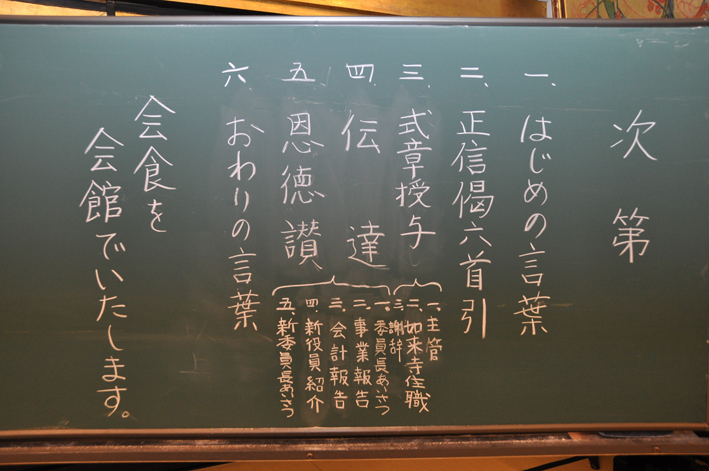 次第
一、はじめの言葉
二、正信偈六首引
三、式章授与
一、主管
二、如来寺住職
三、謝辞
四、伝達
一、委員長あいさつ
二、事業報告
三、会計報告
四、新役員紹介
五、新委員長あいさつ
五、恩徳讃
六、おわりの言葉
会食を
会館でいたします。